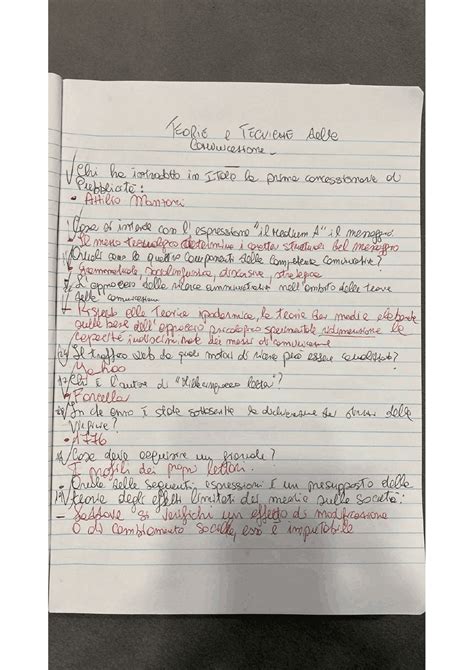 TEORIE e TECNICHE della
Comunicazione
Chi ha introdotto in Italia la prima concessionaria di
Pubblicità:
- Attilio Manzoni
Cosa si intende con l'espressione "il medium è il messaggio
- Il mezzo tecnologico determina i caratteri strutturali del messaggio
Quali sono le quattro componenti della competenza comunicativa?
- Grammaticale, sociolinguistica, discorsiva, strategica
L'approccio delle nell'ambito delle teorie
delle comunicazioni
- Rispetto alle teorie ipodermica, le teorie dei media elaborate
sulla base dell'approccio psicologico sperimentale ridimensiona la
capacità dei mezzi di comunicazione
Il traffico web da quali motori di ricerca può essere
Chi è l'autore di
- Forcella
In che anno è stata sottoscritta la dichiarazione dei diritti della
Virginia?
- 1776
Cosa deve un giornale?
I profili dei propri lettori.
- Quale delle seguenti espressioni è un presupposto della
teoria degli effetti limitati dei media sulla società:
- si verifichi un effetto di modificazione
o di cambiamento sociale, esso è imputabile